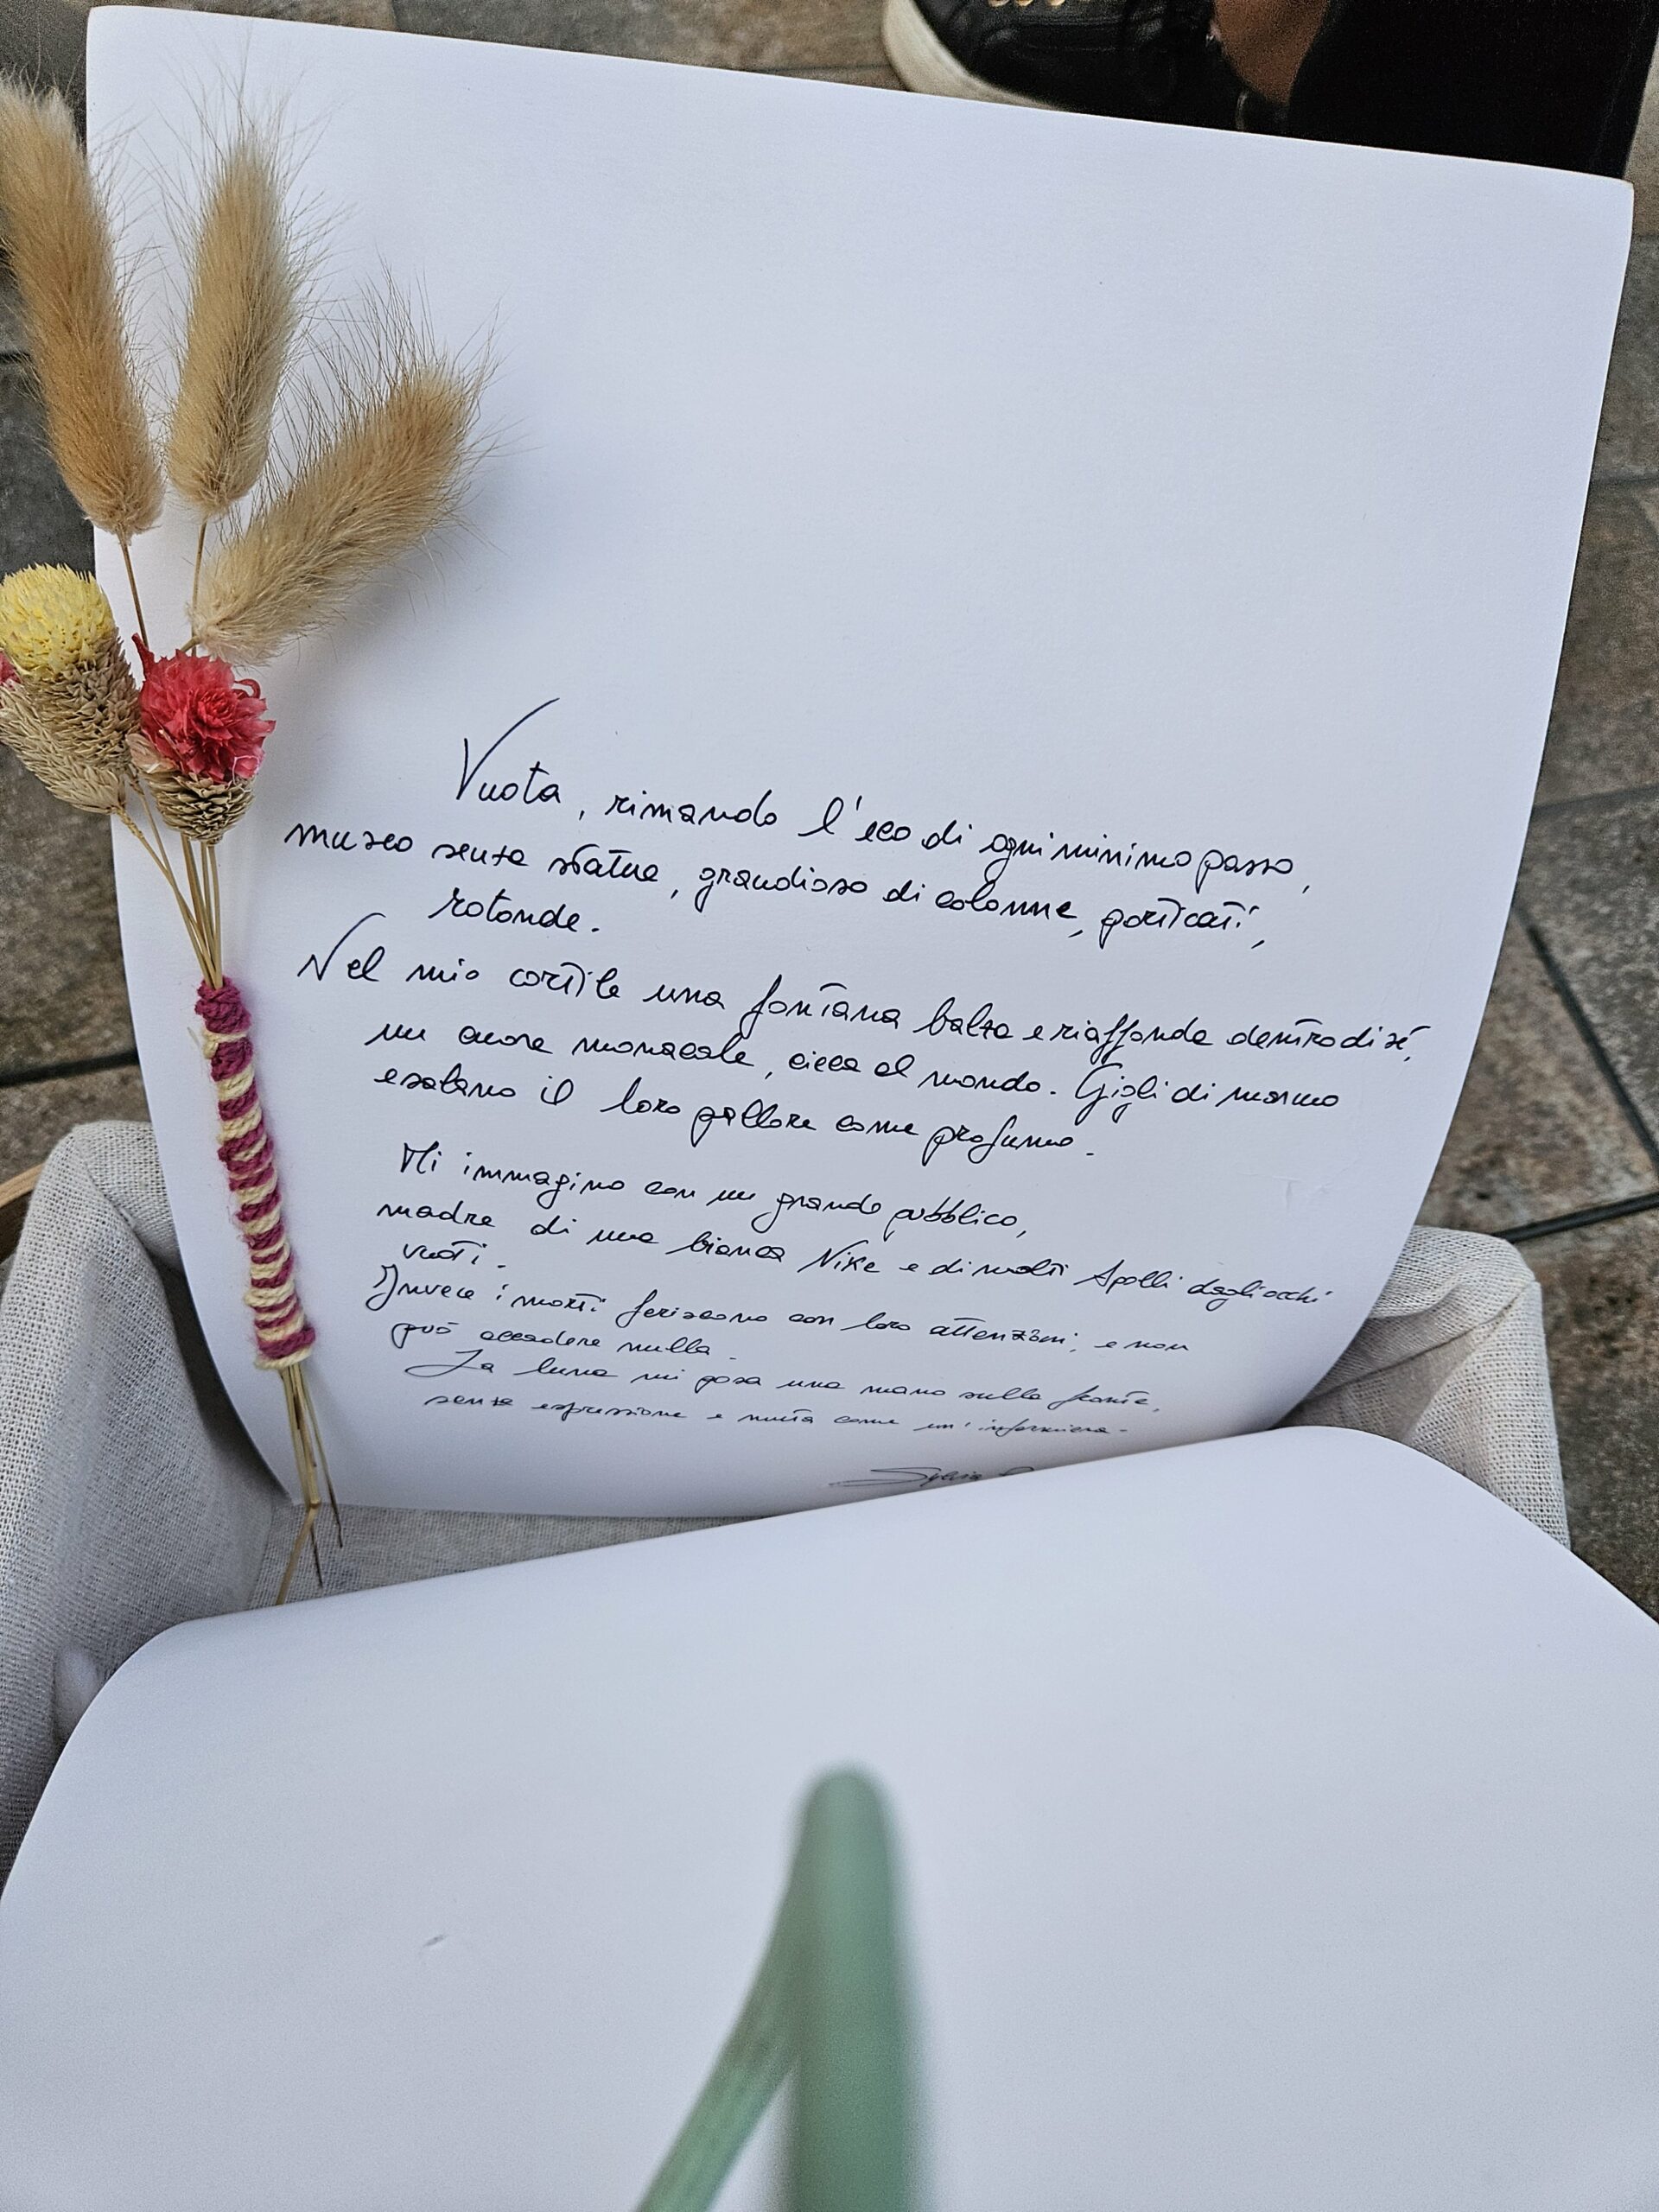 Vuota, rimando l'eco di ogni minimo passo,
museo senza statue, grandioso di colonne, porticati,
rotonde.
Nel mio cortile una fontana balza e riaffonda dentro di sé,
un cuore monacale, cieca al mondo. Gigli di marmo
esalano il loro pallore come profumo.
Mi immagino con un grande pubblico,
madre di una bianca Nike e di molti Apolli dagli occhi
vuoti.
Invece i morti feriscono con loro attenzioni, e non
può accadere nulla.
La luna mi posa una mano sulla fronte,
senza espressione e muta come un'infermiera.
Sylvia